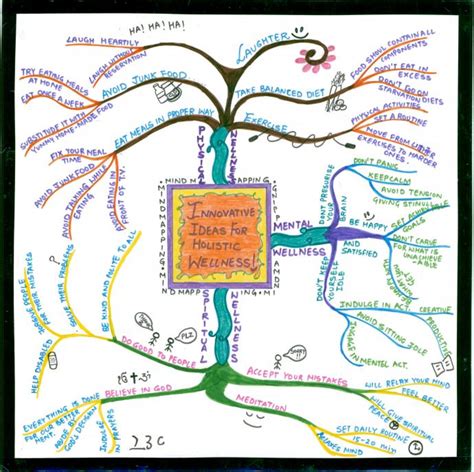 HA! HA! HA!
LAUGH HEARTILY
LAUGH WITHOUT
RESERVATION
LAUGHTER
FOOD SHOULD CONTAIN ALL
COMPONENTS
DON'T EAT IN
EXCESS
DON'T GO ON
STARVATION DIETS
TAKE BALANCED DIET
TRY EATING MEALS
AT HOME
EAT ONCE A WEEK
SUBSTITUTE IT WITH
YUMMY HOME-MADE FOOD
AVOID JUNK FOOD
EXERCISE
PHYSICAL ACTIVITIES
SET A ROUTINE
MOVE FROM LIGHTER
EXERCISES TO HARDER
ONES.
EAT MEALS IN PROPER WAY
FIX YOUR MEAL
TIME
AVOID JUNK FOOD
AVOID TALKING WHILE
EATING
AVOID EATING IN
FRONT OF T.V.
PHYSICAL
WELLNESS
MINDMAPPING
INNOVATIVE
IDEAS FOR
HOLISTIC
WELLNESS!
MENTAL
WELLNESS
DON'T PRESSURISE
YOUR
BRAIN
DON'T PANIC
KEEP CALM
AVOID TENSION
BE HAPPY
AND SATISFIED
SET ACHIEVABLE
GOALS
DON'T CARVE
FOR WHAT IS
UNACHIEV
ABLE
DON'T KEEP
YOURSELF
IDLE
INDULGE IN ACT.
CREATIVE
PRODUCTIVE
AVOID SITTING IDLE
INDULGE
IN MENTAL ACT.
SPIRITUAL
WELLNESS
DO GOOD TO PEOPLE
BE KIND AND POLITE TO ALL
SOLVE THEIR PROBLEMS
FORGIVE PEOPLE
FOR THEIR MISTAKES
HELP DISABLED
PLZ
SORRY
BELIEVE IN GOD
EVERYTHING IS DONE
FOR OUR BETTERMENT
ABIDE BY
GOD'S DECISION
INDULGE
IN PRAYERS
ACCEPT YOUR MISTAKES
WILL RELAX YOUR MIND
FEEL BETTER
WILL GIVE SPIRITUAL
PEACE
MEDITATION
SET DAILY ROUTINE
15-20 min
RELAXES MIND